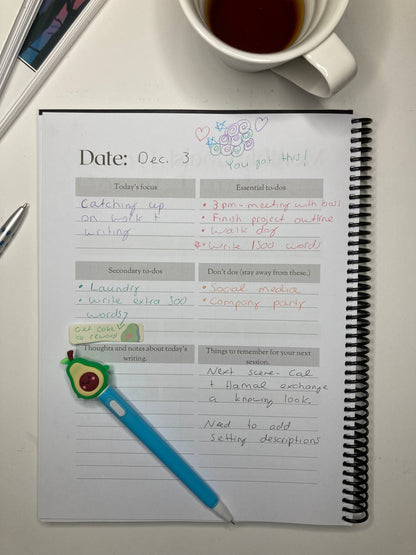 Date: Dec. 3
You got this!
Today's focus
Catching up
on work +
writing
Essential to-dos
• 3pm - meeting with boss
• Finish project outline
• Walk dog
• Write 1500 words
Secondary to-dos
• Laundry
• Write extra 300
words?
Get cake
to reward
Don't dos (stay away from these.)
• Social media
• Company party
Thoughts and notes about today's
writing.
Things to remember for your next
session.
Next scene - Cal
+ Hamal exchange
a knowing look.
Need to add
setting descriptions